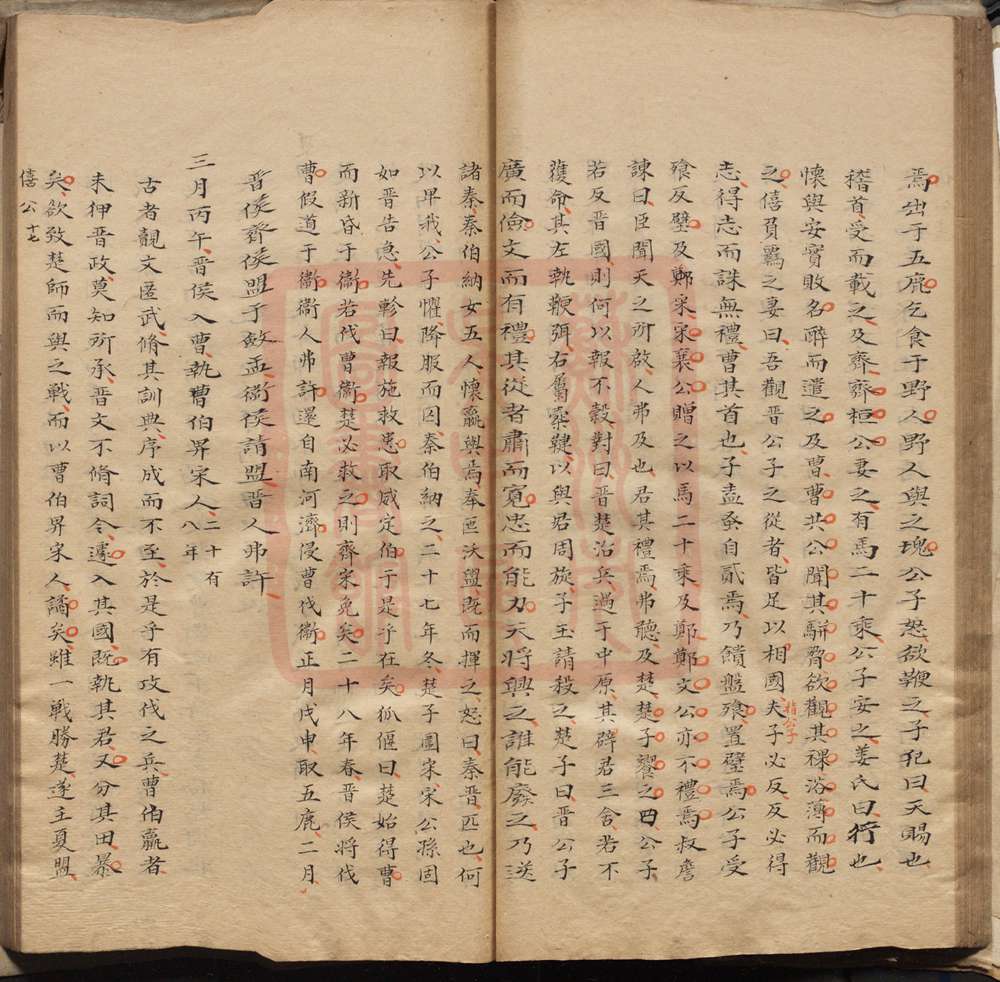 焉出于五鹿乞食于野人野人與之塊公子怒欲鞭之子犯曰天賜也
稽首受而載之及齊齊桓公妻之有馬二十乘公子安之姜氏曰行也
懷與安實敗名醉而遣之及曹曹共公聞其駢脅欲觀其祼浴薄而觀
之僖負羈之妻曰吾觀晉公子之從者皆足以相國夫子必反反必得
指公子
志得志而誅無禮曹其首也子盍蚤自貳焉乃饋盤飧置璧焉公子受
飧反璧及鄭宋宋襄公贈之以馬二十乘及鄭鄭文公亦不禮焉叔詹
諫曰臣聞天之所啟人弗及也君其禮焉弗聽及楚楚子饗之曰公子
若反晉國則何以報不穀對曰晉楚治兵遇于中原其辟君三舍若不
獲命其左執鞭弭右屬櫜鞬以與君周旋子玉請殺之楚子曰晉公子
廣而儉文而有禮其從者肅而寬忠而能力天將興之誰能廢之乃送
諸秦秦伯納女五人懷嬴與焉奉匜沃盥既而揮之怒曰秦晉匹也何
以卑我公子懼降服而囚秦伯納之二十七年冬楚子圍宋宋公孫固
如晉告急先軫曰報施救患取威定伯于是乎在矣狐偃曰楚始得曹
而新昏于衞若伐曹衞楚必救之則齊宋免矣二十八年春晉侯將伐
曹假道于衞衞人弗許還自南河濟侵曹伐衞正月戊申取五鹿二月
晉侯齊侯盟于斂盂衞侯請盟晉人弗許
三月丙午晉侯入曹執曹伯畀宋人二十有八年
古者覿文匿武脩其訓典序成而不至於是乎有攻伐之兵曹伯羸者
未狎晉政莫知所承晉文不脩詞令遽入其國既執其君又分其田暴
矣欲致楚師而與之戰而以曹伯畀宋人譎矣雖一戰勝楚遂主夏盟
僖公十七